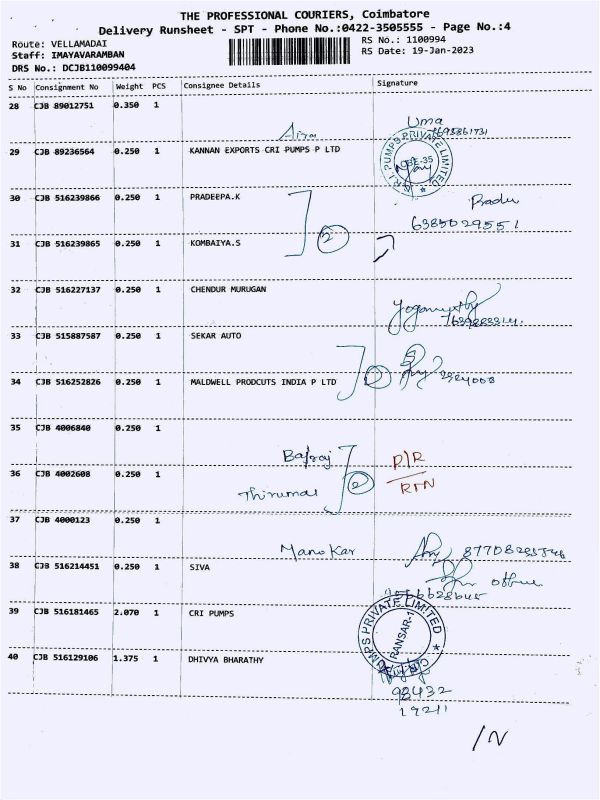 THE PROFESSIONAL COURIERS, Coimbatore
Delivery Runsheet - SPT - Phone No.:0422-3505555 - Page No.:4
Route: VELLAMADAI
RS No.: 1100994
Staff: IMAYAVARAMBAN
RS Date: 19-Jan-2023
DRS No.: DCJB110099404
S No Consignment No Weight PCS Consignee Details Signature
28 CJB 89012751 0.350 1
Uma
29 CJB 89236564 0.250 1 KANNAN EXPORTS CRI PUMPS P LTD
PUMPS PRIVATE LIMITED
30 CJB 516239866 0.250 1 PRADEEPA.K
2
6385029551
31 CJB 516239865 0.250 1 KOMBAIYA.S
32 CJB 516227137 0.250 1 CHENDUR MURUGAN
33 CJB 515887587 0.250 1 SEKAR AUTO
34 CJB 516252826 0.250 1 MALDWELL PRODCUTS INDIA P LTD
2
35 CJB 4006840 0.250 1
Balraj
36 CJB 4002608 0.250 1
Thirumal
2
RTN
37 CJB 4000123 0.250 1
Manokar
38 CJB 516214451 0.250 1 SIVA
39 CJB 516181465 2.070 1 CRI PUMPS
PUMPS PRIVATE LIMITED
RANSAR-1
40 CJB 516129106 1.375 1 DHIVYA BHARATHY
98432
19211